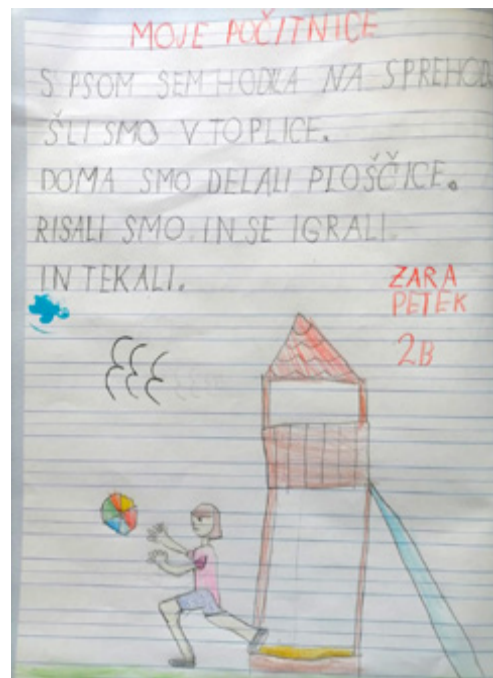 MOJE POČITNICE
S PSOM SEM HODILA NA SPREHOD
ŠLI SMO V TOPLICE.
DOMA SMO DELALI PLOŠČICE.
RISALI SMO IN SE IGRALI
IN TEKALI.
ZARA
PETEK
2B